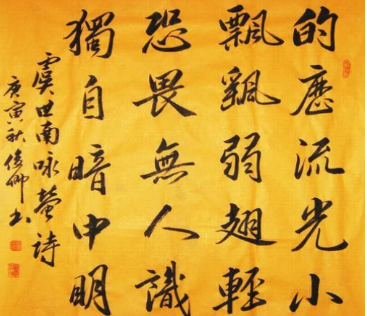 的歷流光小
飄颻弱翅輕
恐畏無人識
獨自暗中明
虞世南咏螢詩
庚寅秋俊卿书